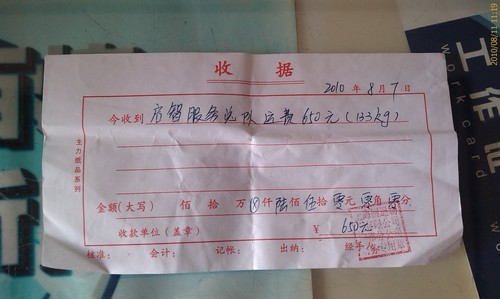 2010/08/11 11:19
收 据
2010 年 8 月 7 日
今收到 启智服务总队运费650元(133kg)
金额(大写) 佰 拾 万 仟陆佰伍拾零元零角零分
收款单位(盖章) ¥ 650元
核准: 会计: 记帐: 出纳: 经手
主力纸品系列
工作证
work card